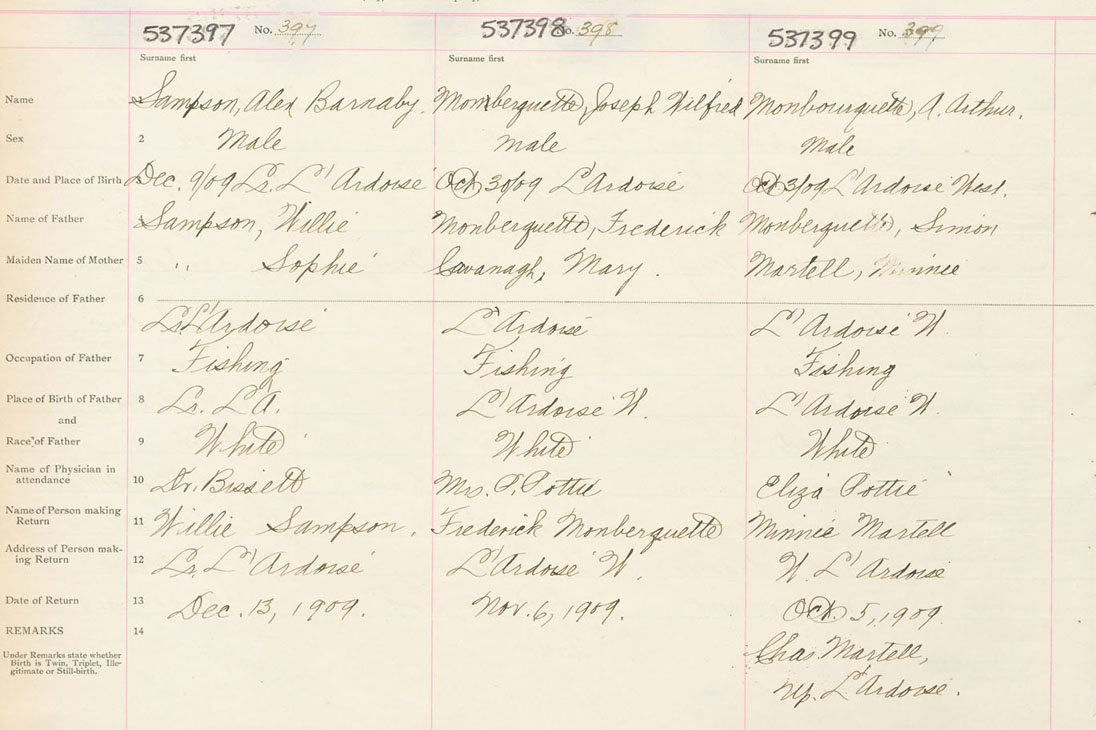 537397 No. 397 537398 No. 398 537399 No. 399
Surname first Surname first Surname first
Name Sampson, Alex Barnaby. Monberquette, Joseph Wilfred Monbourquette, A. Arthur.
Sex 2 Male Male Male
Date and Place of Birth Dec. 9/09 Lr. L'Ardoise Oct 30/09 L'Ardoise Oct 3/09 L'Ardoise West.
Name of Father Sampson, Willie Monberquette, Frederick Monberquette, Simon
Maiden Name of Mother 5 " Sophie Cavanagh, Mary. Martell, Minnie
Residence of Father 6
Lr. L'Ardoise L'Ardoise L'Ardoise W.
Occupation of Father 7 Fishing Fishing Fishing
Place of Birth of Father 8 Lr. L'A. L'Ardoise W. L'Ardoise W.
and
Race of Father 9 White White White
Name of Physician in
attendance 10 Dr. Bissett Mrs. P. Pottie Eliza Pottie
Name of Person making
Return 11 Willie Sampson. Frederick Monberquette Minnie Martell
Address of Person mak-
ing Return 12 Lr. L'Ardoise L'Ardoise W. W. L'Ardoise
Date of Return 13 Dec. 13, 1909. Nov. 6, 1909. Oct. 5, 1909.
REMARKS 14
Under Remarks state whether
Birth is Twin, Triplet, Ille-
gitimate or Still-birth.
Chas. Martell,
Up. L'Ardoise.